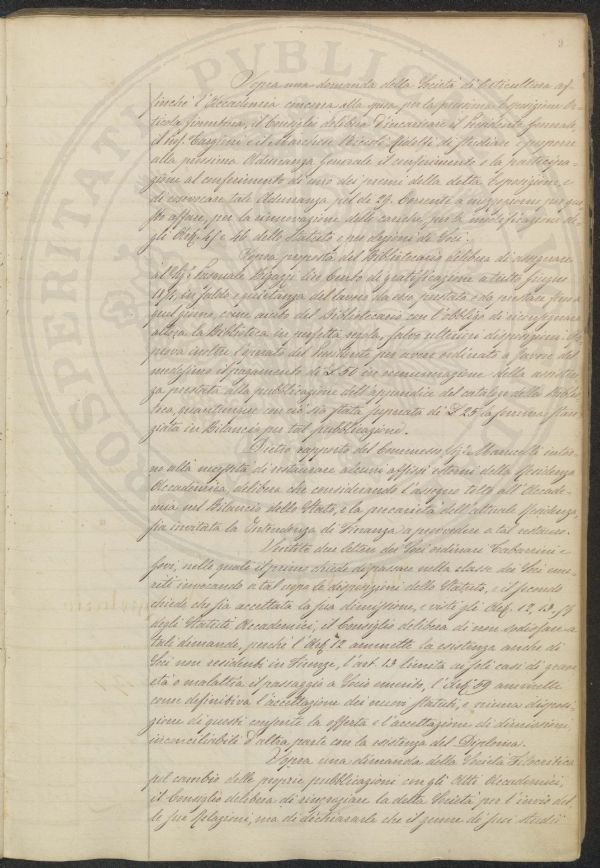 9
Sopra una domanda della Società di Orticultura af-
finchè l'Accademia concorra alla spesa per la prossima Esposizione Or-
ticola fiorentina, il Consiglio delibera d'incaricare il Presidente
il Prof. e il Marchese Niccolò Ridolfi di studiare e proporre
alla prossima Adunanza Generale il conferimento o la partecipa-
zione al conferimento di uno dei premi della detta Esposizione, e
di convocare tale Adunanza pel dì 29 Corrente a mezzogiorno per que-
sto affare, per la rinnovazione delle cariche, per la modificazione de-
gli Art.i 45 e 46 dello Statuto e per elezioni di Soci.
Sopra proposta del Bibliotecario delibera di assegnare
al Sig.r Pasquale Bigazzi lire Cento di gratificazione a tutto Giugno
in saldo e quietanza del lavoro da esso prestato e da prestare fino a
quel giorno, come aiuto del Bibliotecario con l'obbligo di riconsegnare
allora la Biblioteca in perfetta regola, salvo ulteriori disposizioni. Ap-
prova inoltre l'operato del Presidente per avere ordinato a favore del
medesimo il pagamento di £ 50 in remunerazione della assisten-
za prestata alla pubblicazione dell'appendice del catalogo della Biblio-
teca, quantunque con ciò sia stata superata di £ 25, la somma stan-
ziata in Bilancio per tal pubblicazione.
Dietro rapporto del Economo Sig.r Manuelli intor-
no alla necessità di restaurare alcuni affissi esterni della Residenza
Accademica, delibera che considerando l'assegno tolto all'Accade-
mia nel Bilancio dello Stato, e la precarietà dell'attuale Residenza,
sia invitata la Intendenza di Finanza a provvedere a tal restauro.
Vedute due lettere dei Soci ordinari Cabarrini e
nella quale il primo chiede di passare nella classe dei Soci eme-
riti invocando a tal uopo le disposizioni dello Statuto, e il secondo
chiede che sia accettata la sua dimissione, e visti gli Art.i 12, 13, 59
degli Statuti Accademici, il Consiglio delibera di non sodisfare a
tali domande, perchè l'Art.o 12 ammette la esistenza anche di
Soci non residenti in Firenze, l'art. 13 limita ai soli casi di grave
età o malattia il passaggio a Socio emerito, l'Art.o 59 ammette
come definitiva l'accettazione dei nuovi Statuti, e niuna disposi-
zione di questi consente la offerta e l'accettazione di dimissioni,
inconciliabile d'altra parte con la esistenza del Diploma.
Sopra una domanda della Società Filocritica
pel cambio delle proprie pubblicazioni con gli Atti Accademici,
il Consiglio delibera di ringraziare la detta Società per l'invio del-
le sue Relazioni, ma di dichiararle che il genere de' suoi studii